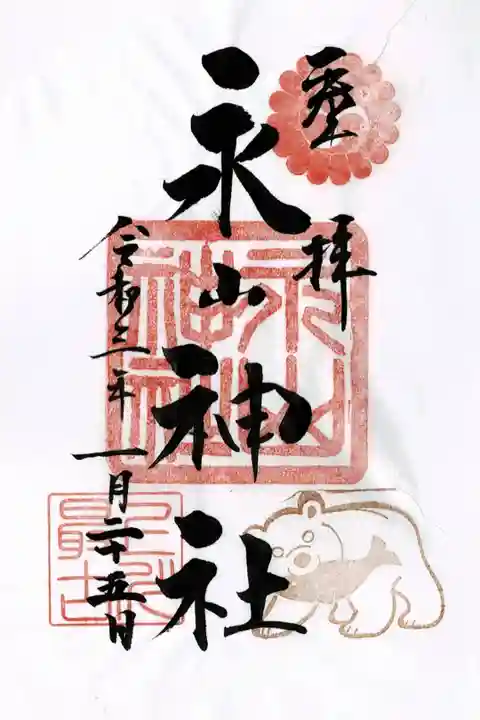 奉拝
永山神社
令和三年 一月二十五日
永山神社